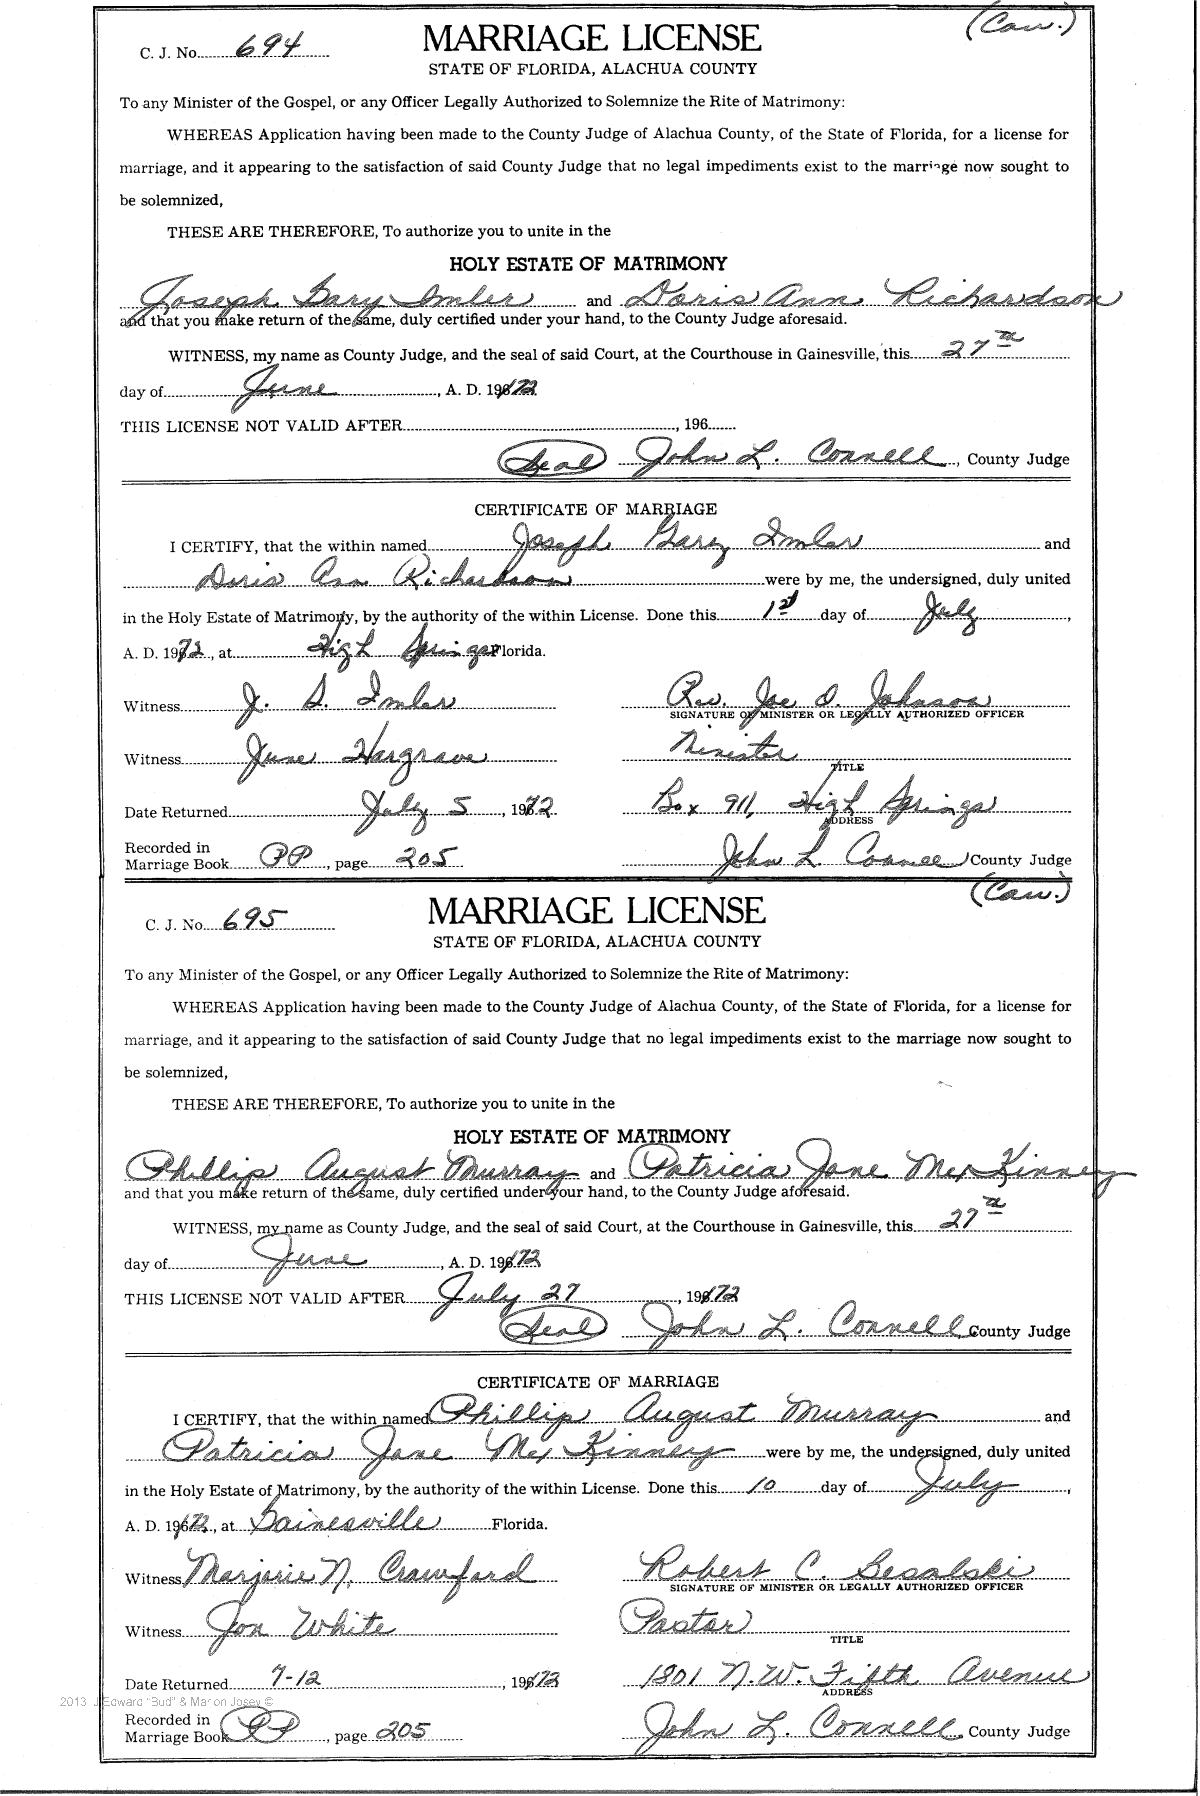 (Cau.)
C. J. No. 694
MARRIAGE LICENSE
STATE OF FLORIDA, ALACHUA COUNTY
To any Minister of the Gospel, or any Officer Legally Authorized to Solemnize the Rite of Matrimony:
WHEREAS Application having been made to the County Judge of Alachua County, of the State of Florida, for a license for
marriage, and it appearing to the satisfaction of said County Judge that no legal impediments exist to the marriage now sought to
be solemnized,
THESE ARE THEREFORE, To authorize you to unite in the
HOLY ESTATE OF MATRIMONY
Joseph Gary Imler and Doris Ann Richardson
and that you make return of the same, duly certified under your hand, to the County Judge aforesaid.
WITNESS, my name as County Judge, and the seal of said Court, at the Courthouse in Gainesville, this 27th
day of June, A. D. 1972
THIS LICENSE NOT VALID AFTER , 196
Seal John L. Connell, County Judge
CERTIFICATE OF MARRIAGE
I CERTIFY, that the within named Joseph Gary Imler and
Doris Ann Richardson were by me, the undersigned, duly united
in the Holy Estate of Matrimony, by the authority of the within License. Done this 1st day of July,
A. D. 1972, at High Springs Florida.
Witness J. S. Imler Rev. Joe O. Johnson
SIGNATURE OF MINISTER OR LEGALLY AUTHORIZED OFFICER
Witness June Hargrave Minister
TITLE
Date Returned July 5, 1972 Box 911, High Springs
ADDRESS
Recorded in
Marriage Book PP, page 205 John L Connell County Judge
(Cau.)
C. J. No. 695
MARRIAGE LICENSE
STATE OF FLORIDA, ALACHUA COUNTY
To any Minister of the Gospel, or any Officer Legally Authorized to Solemnize the Rite of Matrimony:
WHEREAS Application having been made to the County Judge of Alachua County, of the State of Florida, for a license for
marriage, and it appearing to the satisfaction of said County Judge that no legal impediments exist to the marriage now sought to
be solemnized,
THESE ARE THEREFORE, To authorize you to unite in the
HOLY ESTATE OF MATRIMONY
Phillip August Murray and Patricia Jane McKinney
and that you make return of the same, duly certified under your hand, to the County Judge aforesaid.
WITNESS, my name as County Judge, and the seal of said Court, at the Courthouse in Gainesville, this 27th
day of June, A. D. 1972
THIS LICENSE NOT VALID AFTER July 27, 1972
Seal John L. Connell County Judge
CERTIFICATE OF MARRIAGE
I CERTIFY, that the within named Phillip August Murray and
Patricia Jane McKinney were by me, the undersigned, duly united
in the Holy Estate of Matrimony, by the authority of the within License. Done this 10 day of July,
A. D. 1972, at Gainesville Florida.
Witness Marjorie N. Crawford Robert C. Besalski
SIGNATURE OF MINISTER OR LEGALLY AUTHORIZED OFFICER
Witness Jon White Pastor
TITLE
Date Returned 7-12, 1972 1301 N.W. Fifth Avenue
ADDRESS
2013 J Edward "Bud" & Marion Josey ©
Recorded in
Marriage Book PP, page 205 John L. Connell, County Judge